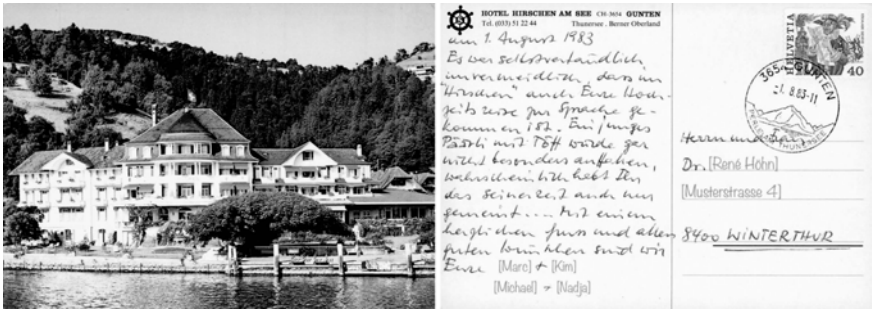 HOTEL HIRSCHEN AM SEE CH-3654 GUNTEN
Tel. (033) 51 22 44 Thunersee, Berner Oberland
am 1. August 1983
Es war selbstverständlich
unvermeidlich, dass im
"Hirschen" auch Eure Hoch-
zeitsreise zur Sprache ge-
kommen ist. Ein junges
Pärli mit Töff würde gar
nicht besonders auffallen,
wahrscheinlich habt Ihr
das seinerzeit auch nur
gemeint.... Mit einem
herzlichen Gruss und allen
guten Wünschen sind wir
Eure [Marc] + [Kim]
[Michael] + [Nadja]
HELVETIA
40
3654 GUNTEN
-1. 8.83-11
THUNERSEE
Herrn und Frau
Dr. [René Höhn]
[Musterstrasse 4]
8400 WINTERTHUR